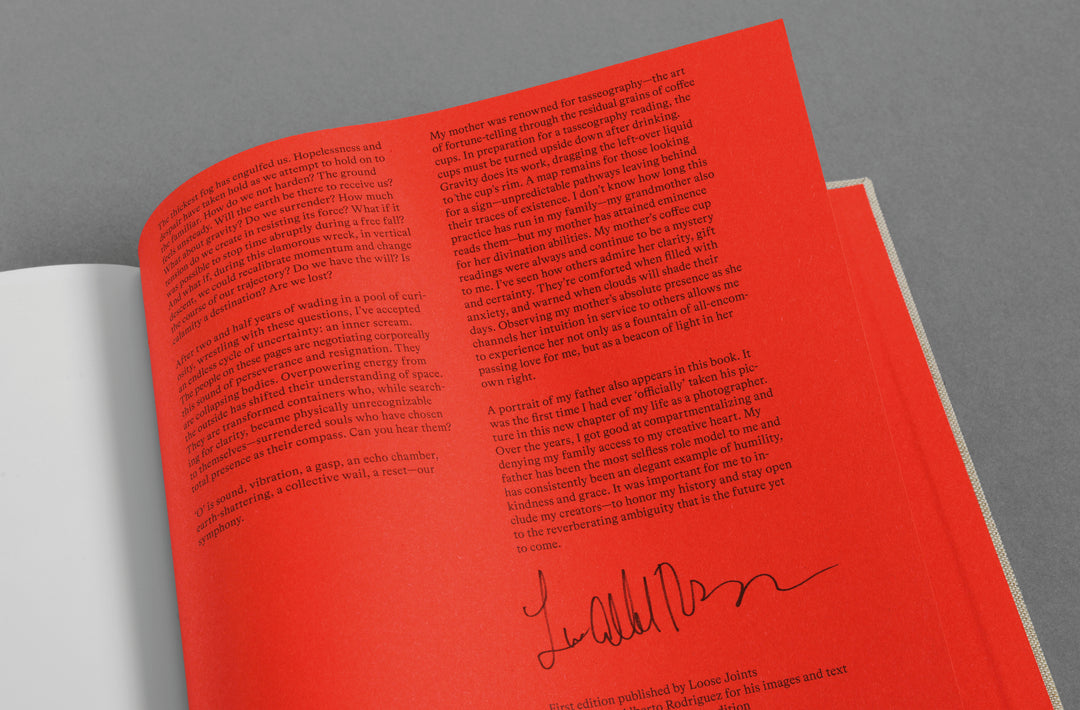 The thickest fog has engulfed us. Hopelessness and
despair have taken hold as we attempt to hold on to
the familiar. How do we not harden? The ground
feels unsteady. Will the earth be there to receive us?
What about gravity? Do we surrender? How much
tension do we create in resisting its force? What if it
was possible to stop time abruptly during a free fall?
And what if, during this clamorous wreck, in vertical
descent, we could recalibrate momentum and change
the course of our trajectory? Do we have the will? Is
calamity a destination? Are we lost?
After two and half years of wading in a pool of curi-
osity, wrestling with these questions, I've accepted
an endless cycle of uncertainty: an inner scream.
The people on these pages are negotiating corporeally
this sound of perseverance and resignation. They
are collapsing bodies. Overpowering energy from
the outside has shifted their understanding of space.
They are transformed containers who, while search-
ing for clarity, became physically unrecognizable
to themselves—surrendered souls who have chosen
total presence as their compass. Can you hear them?
'O' is sound, vibration, a gasp, an echo chamber,
earth-shattering, a collective wail, a reset—our
symphony.
My mother was renowned for tasseography—the art
of fortune-telling through the residual grains of coffee
cups. In preparation for a tasseography reading, the
cups must be turned upside down after drinking.
Gravity does its work, dragging the left-over liquid
to the cup's rim. A map remains for those looking
for a sign—unpredictable pathways leaving behind
their traces of existence. I don't know how long this
practice has run in my family—my grandmother also
reads them—but my mother has attained eminence
for her divination abilities. My mother's coffee cup
readings were always and continue to be a mystery
to me. I've seen how others admire her clarity, gift
and certainty. They're comforted when filled with
anxiety, and warned when clouds will shade their
days. Observing my mother's absolute presence as she
channels her intuition in service to others allows me
to experience her not only as a fountain of all-encom-
passing love for me, but as a beacon of light in her
own right.
A portrait of my father also appears in this book. It
was the first time I had ever 'officially' taken his pic-
ture in this new chapter of my life as a photographer.
Over the years, I got good at compartmentalizing and
denying my family access to my creative heart. My
father has been the most selfless role model to me and
has consistently been an elegant example of humility,
kindness and grace. It was important for me to in-
clude my creators—to honor my history and stay open
to the reverberating ambiguity that is the future yet
to come.
First edition published by Loose Joints
Rodriguez for his images and text